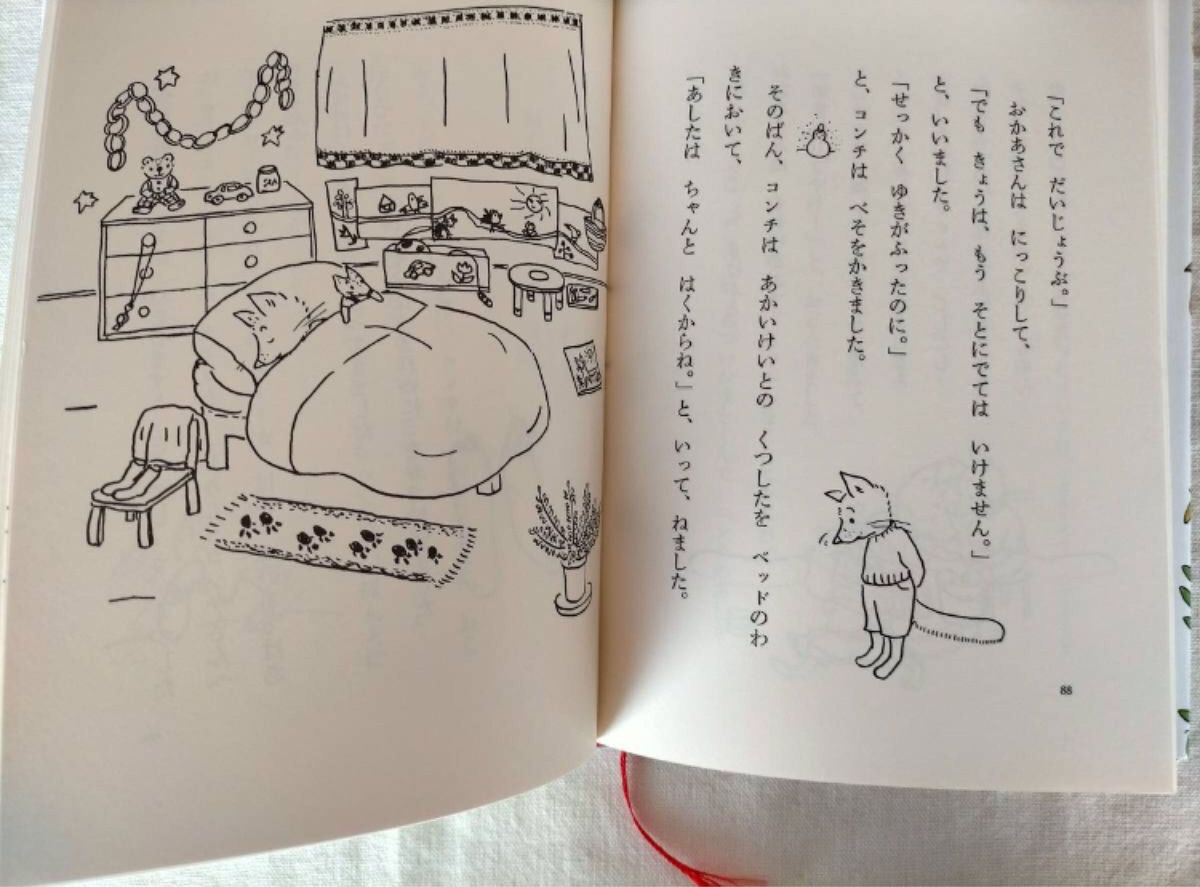 「これで だいじょうぶ。」
おかあさんは にっこりして、
「でも きょうは、もう そとにでては いけません。」
と、いいました。
「せっかく ゆきがふったのに。」
と、コンチは べそをかきました。
そのばん、コンチは あかいけいとの くつしたを ベッドのわ
きにおいて、
「あしたは ちゃんと はくからね。」と、いって、ねました。
88